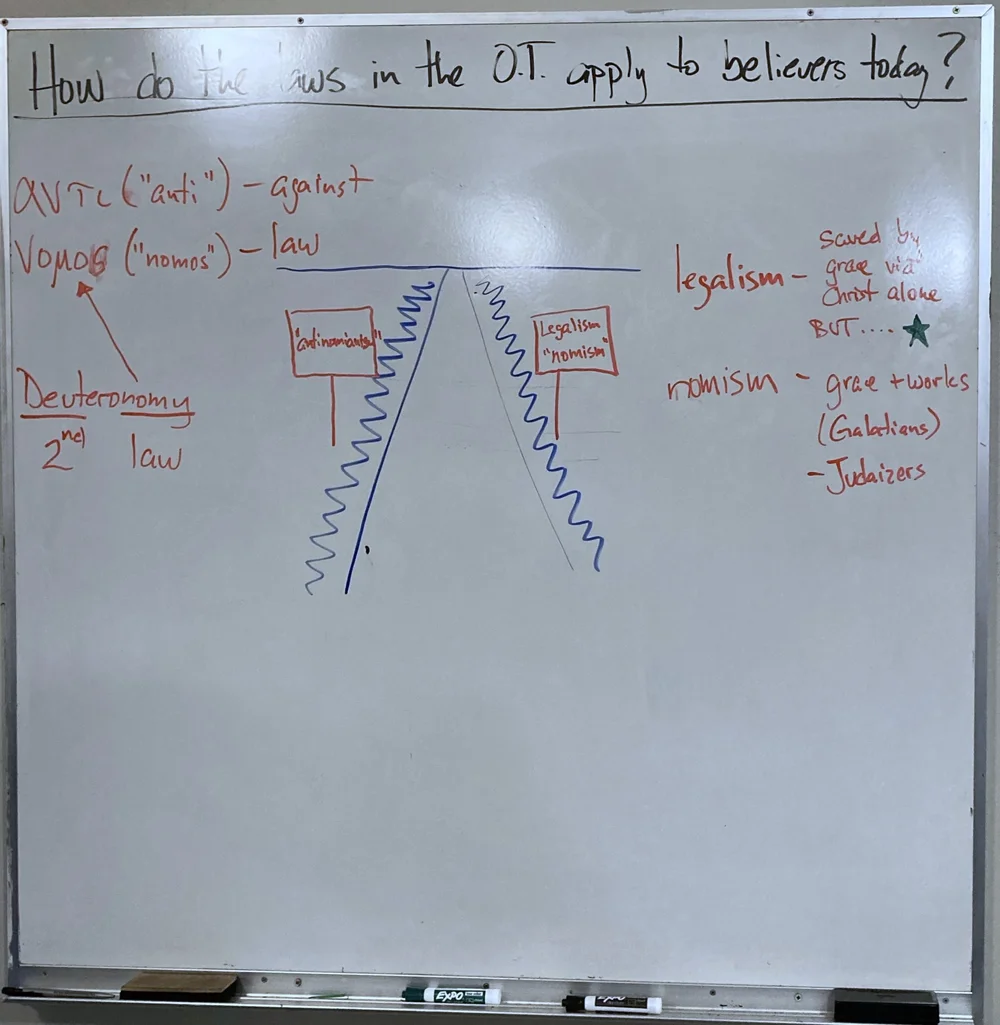 How do the laws in the O.T. apply to believers today?
αντι ("anti") - against
νομος ("nomos") - law
Deuteronomy
2nd law
"antinomianism"
Legalism
"nomism"
legalism - saved by
grace via
Christ alone
BUT.... ★
nomism - grace + works
(Galatians)
- Judaizers
EXPO
EXPO